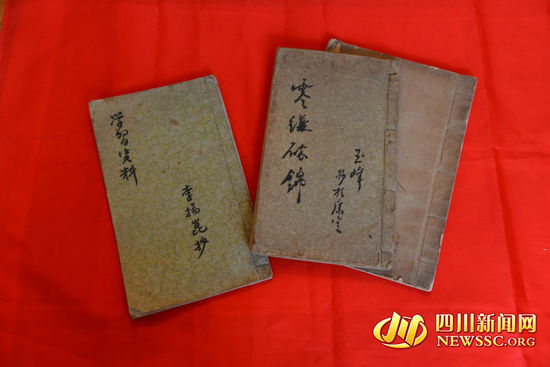 学習资料
李楊崑抄
零縑碎錦
玉峰
抄於
四川新闻网
NEWSSC.ORG